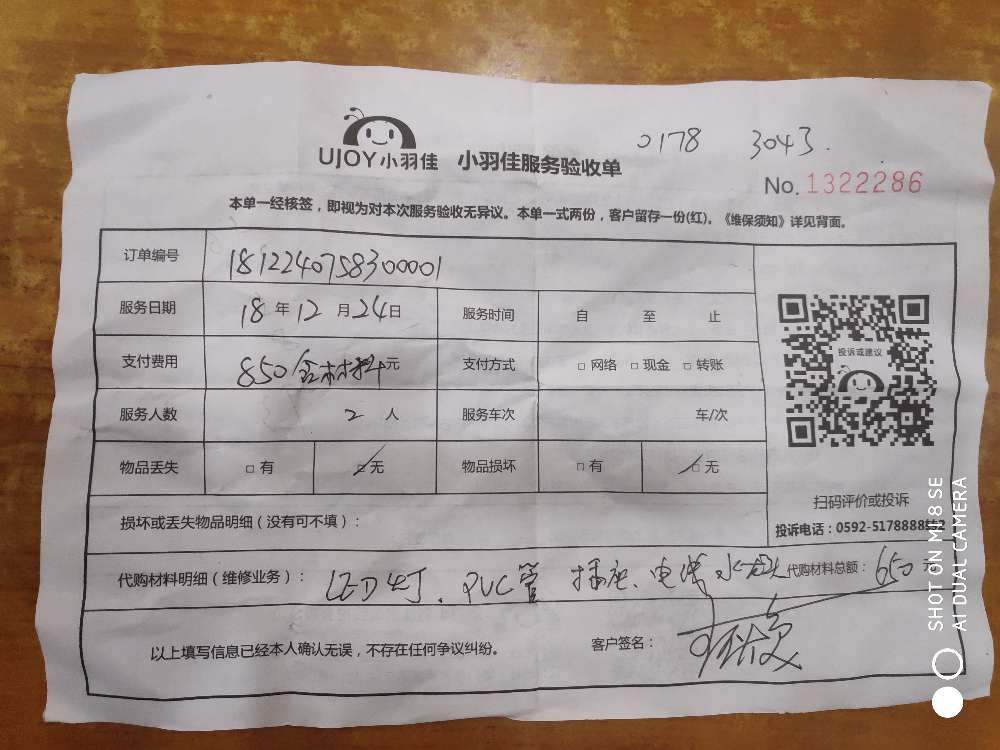 0178 3043.
UJOY小羽佳 小羽佳服务验收单
No. 1322286
本单一经核签，即视为对本次服务验收无异议。本单一式两份，客户留存一份(红)。《维保须知》详见背面。
订单编号 1812240758300001
服务日期 18 年 12 月 24 日 服务时间 自 至 止
支付费用 850含材料元 支付方式 □ 网络 □ 现金 □ 转账
投诉或建议
服务人数 2 人 服务车次 车/次
物品丢失 □ 有 □ 无 物品损坏 □ 有 □ 无
扫码评价或投诉
损坏或丢失物品明细（没有可不填）：
投诉电话：0592-5178888转2
代购材料明细（维修业务）： LED灯、PVC管 插座、电线 水龙头 代购材料总额： 650 元
以上填写信息已经本人确认无误，不存在任何争议纠纷。 客户签名：
SHOT ON MI 8 SE
AI DUAL CAMERA